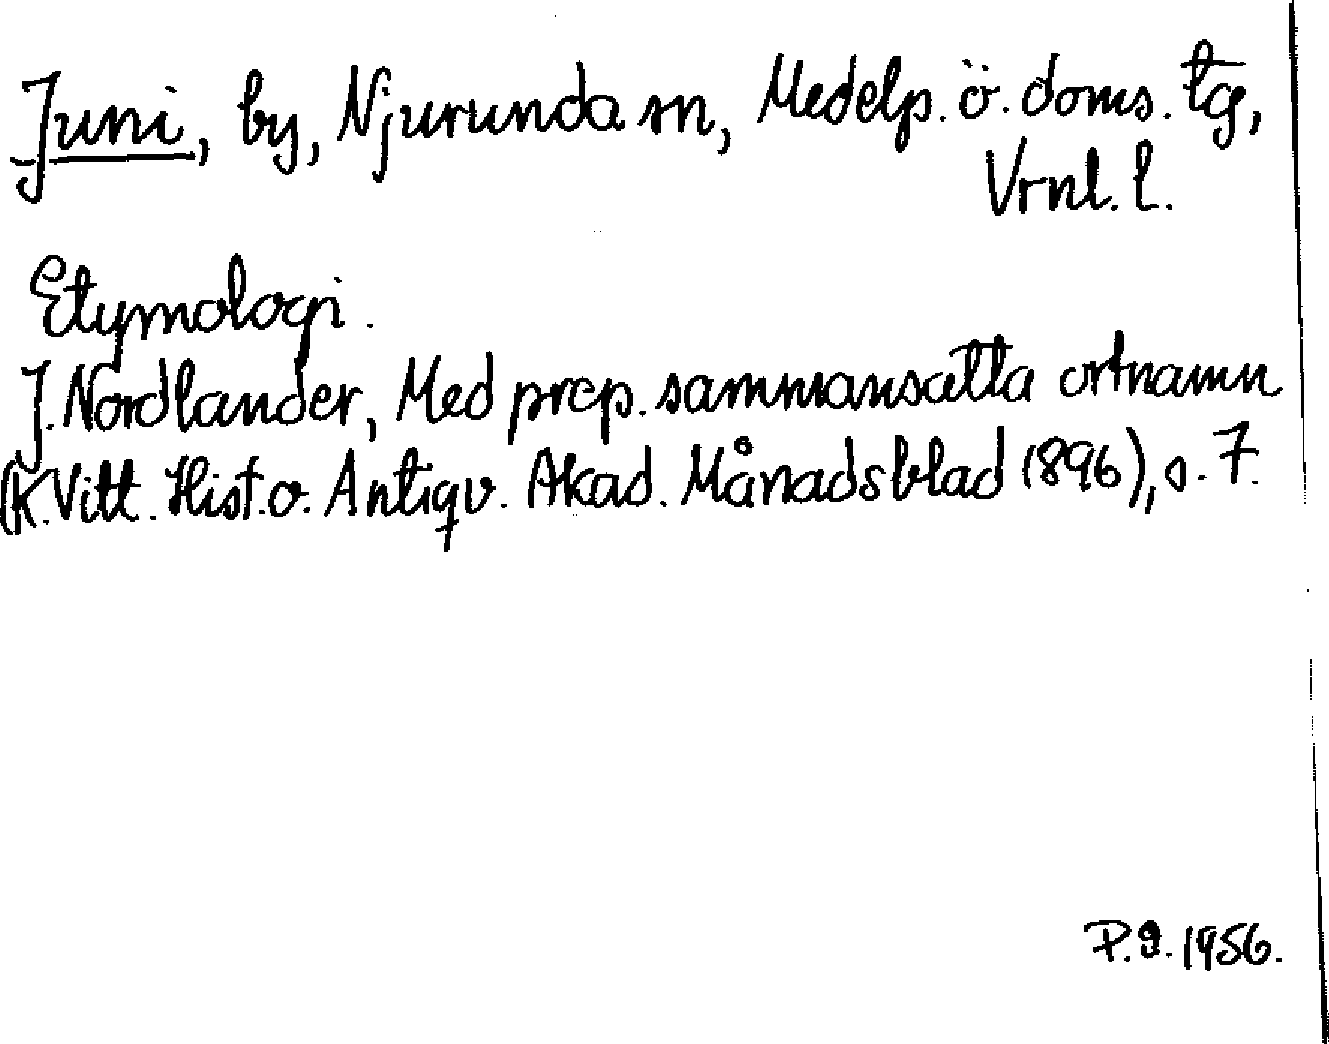 Juni, by, Njurunda sn, Medelp. ö. doms. tg,
Vrnl. l.
Etymologi.
J. Nordlander, Med prep. sammansatta ortnamn
(K. Vitt. Hist. o. Antiqv. Akad. Månadsblad 1896), s. 7.
P.G. 1956.